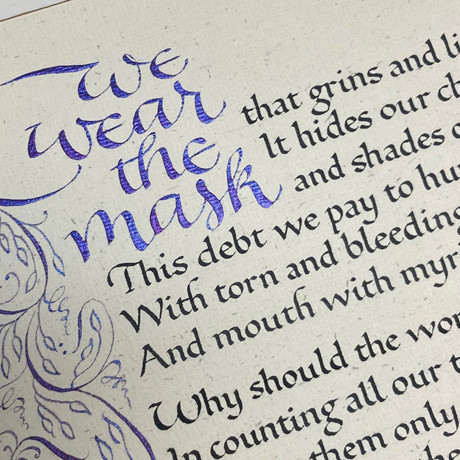 We
wear
the
mask
that grins and li
It hides our ch
and shades o
This debt we pay to hu
With torn and bleeding
And mouth with myri
Why should the wor
In counting all our t
them only